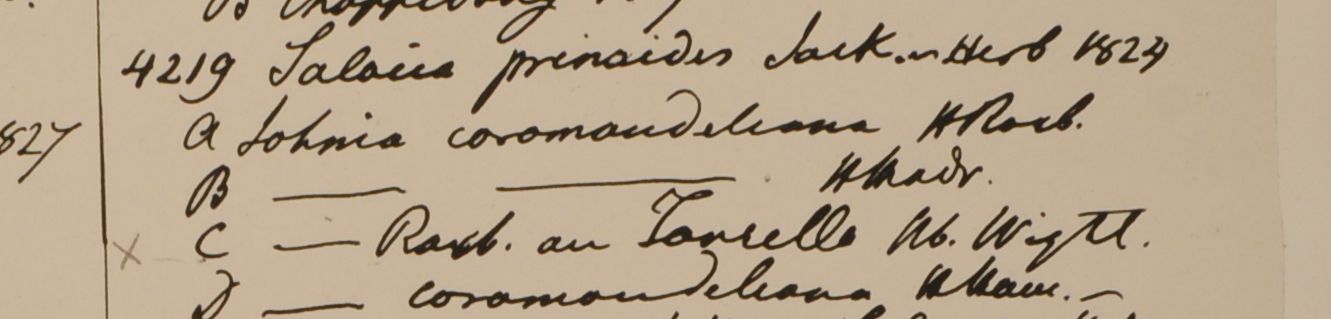 4219 Salacia prinoides Jack. in Herb 1824
827
A Johnia coromandeliana H Roxb.
B — — H Madr.
X C — Roxb. an Tonsella Hb. Wight.
D — coromandeliana H Ham. –